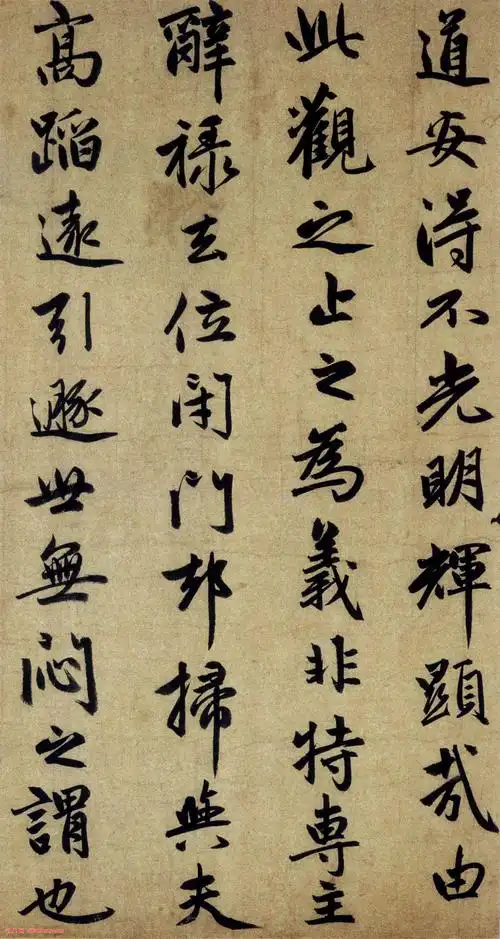 道安得不光明輝顯哉由
此觀之止之為義非特專主
辭祿去位閉門却掃與夫
高蹈遠引遯世無悶之謂也